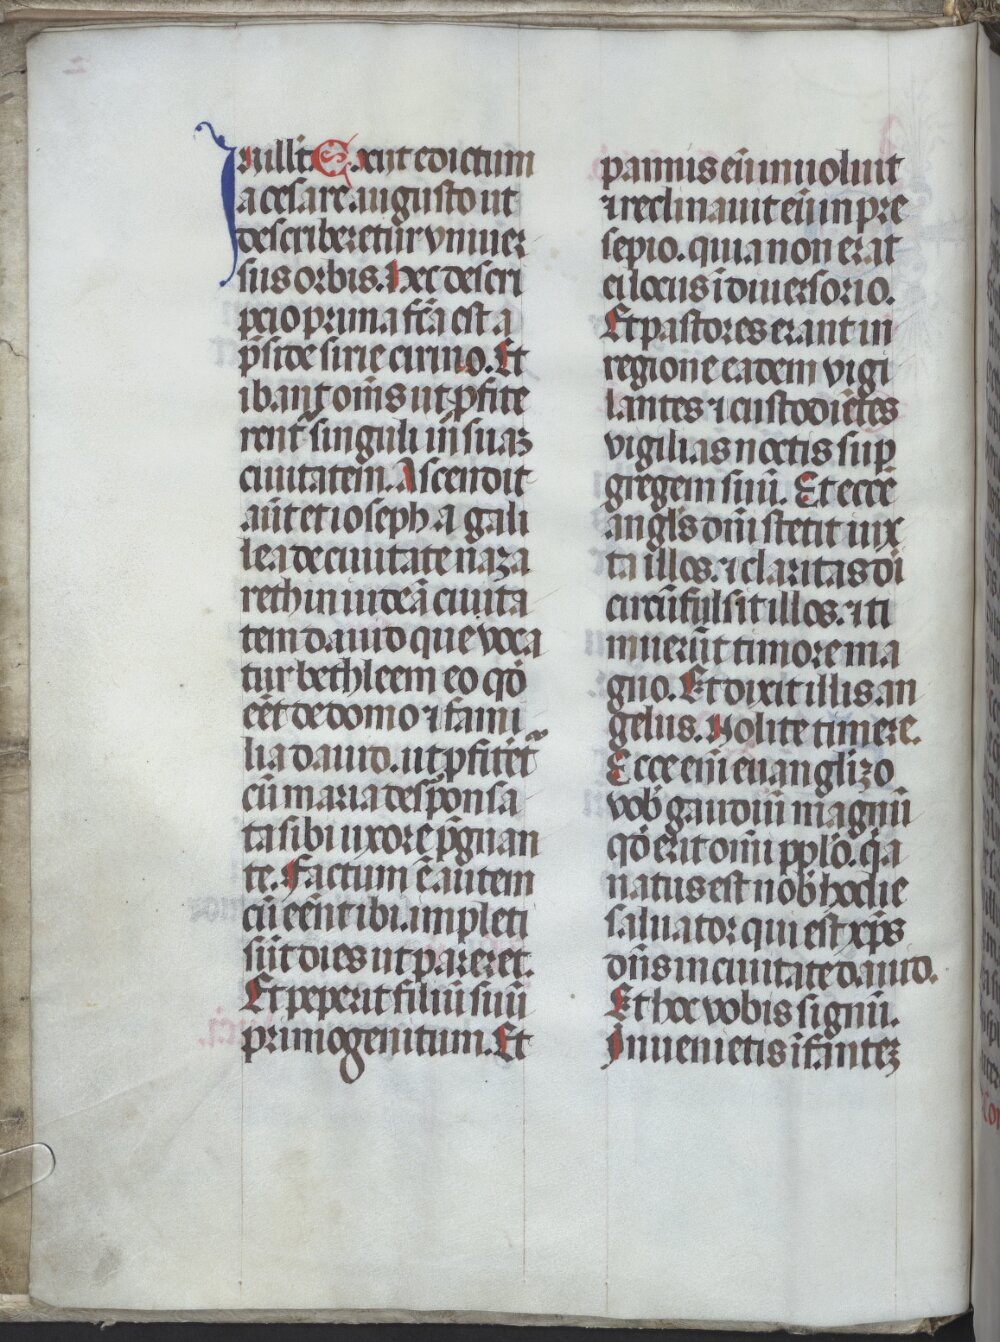 In illo t̄. Exiit edictum
a cesare augusto ut
describeretur vniuer
sus orbis. Hec descri
pcio prima fc̄a est a
p̄side sirie cirino. Et
ibant om̄s ut ꝓfite
rent̄ singuli in suaʒ
ciuitatem. Ascendit
aūt et ioseph a gali
lea de ciuitate naza
reth in iudeā ciuita
tem dauid que voca
tur bethleem eo qď
eēt de domo ⁊ fami
lia dauid. ut ꝓfiteret̄
cū maria desponsa
ta sibi uxore p̄gnan
te. Factum ē autem
cū eēnt ibi. impleti
sūt dies ut pareret.
Et peperit filiū suū
primogenitum. Et
pannis eū inuoluit
⁊ reclinauit eū in pre
sepio. quia non erat
ei locus ī diuersorio.
Et pastores erant in
regione eadem vigi
lantes ⁊ custodiētes
vigilias noctis suꝑ
gregem suū. Et ecce
angl̄s dn̄i stetit iux
ta illos. ⁊ claritas dī
circūfulsit illos. ⁊ ti
muerūt timore ma
gno. Et dixit illis an
gelus. Nolite timere.
Ecce eni euanglizo
vob̄ gaudiū magnū
qď erit om̄i ppl̄o. q̄a
natus est nob̄ hodie
saluator qui est xp̄s
dn̄s in ciuitate dauid.
Et hoc vobis signū.
Inuenietis īfanteʒ